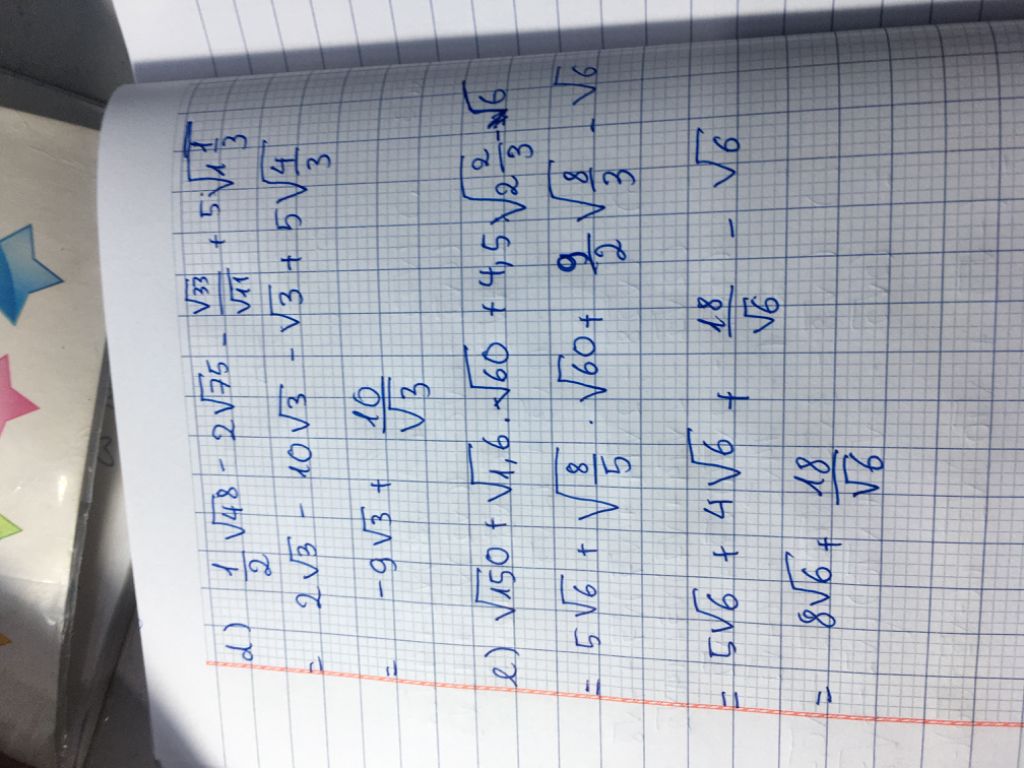 d) \frac{1}{2}√48 - 2√75 - \frac{√33}{√11} + 5√{1\frac{1}{3}}
= 2√3 - 10√3 - √3 + 5√{\frac{4}{3}}
= -9√3 + \frac{10}{√3}
e) √150 + √1,6 . √60 + 4,5√{2\frac{2}{3}} - √6
= 5√6 + √{\frac{8}{5}} . √60 + \frac{9}{2}√{\frac{8}{3}} - √6
= 5√6 + 4√6 + \frac{18}{√6} - √6
= 8√6 + \frac{18}{√6}